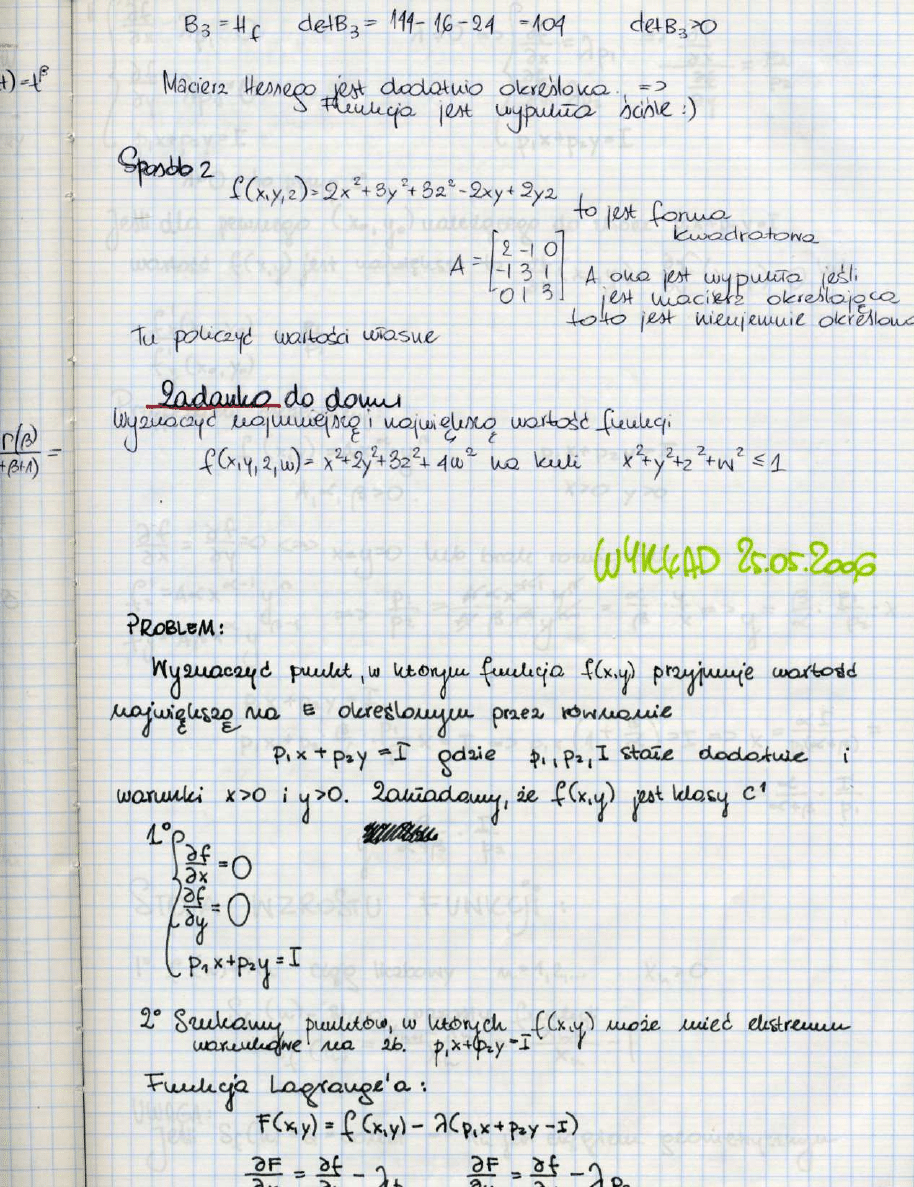 B₃ = H_f   detB₃ = 144-16-24 = 104   detB₃>0
t)=t^β
Macierz Hessego jest dodatnio określona. =>
Funkcja jest wypukła ściśle :)
Sposób 2
f(x,y,z)=2x²+3y²+3z²-2xy+2yz
to jest forma
kwadratowa
A = [2 -1 0
-1 3 1
0 1 3]
A ona jest wypukła jeśli
jest macierz określająca
to jest nieujemnie określona
Tu policzyć wartości własne
Zadanko do domu
Wyznaczyć najmniejszą i największą wartość funkcji
Γ(β)
+β+1) =
f(x,y,z,w)= x²+2y²+3z²+4w² na kuli x²+y²+z²+w² ≤ 1
WYKŁAD 25.05.2006
PROBLEM:
Wyznaczyć punkt, w którym funkcja f(x,y) przyjmuje wartość
największą na E określonym przez równanie
p₁x + p₂y = I gdzie p₁, p₂, I stałe dodatnie i
warunki x>0 i y>0. Zakładamy, że f(x,y) jest klasy C¹
1°
∂f/∂x = 0
∂f/∂y = 0
p₁x+p₂y = I
2° Szukamy punktów, w których f(x,y) może mieć ekstremum
warunkowe na zb. p₁x+p₂y=I
Funkcja Lagrange'a:
F(x,y) = f(x,y) - λ(p₁x+p₂y-I)
∂F/∂x = ∂f/∂x - λp₁   ∂F/∂y = ∂f/∂y - λp₂